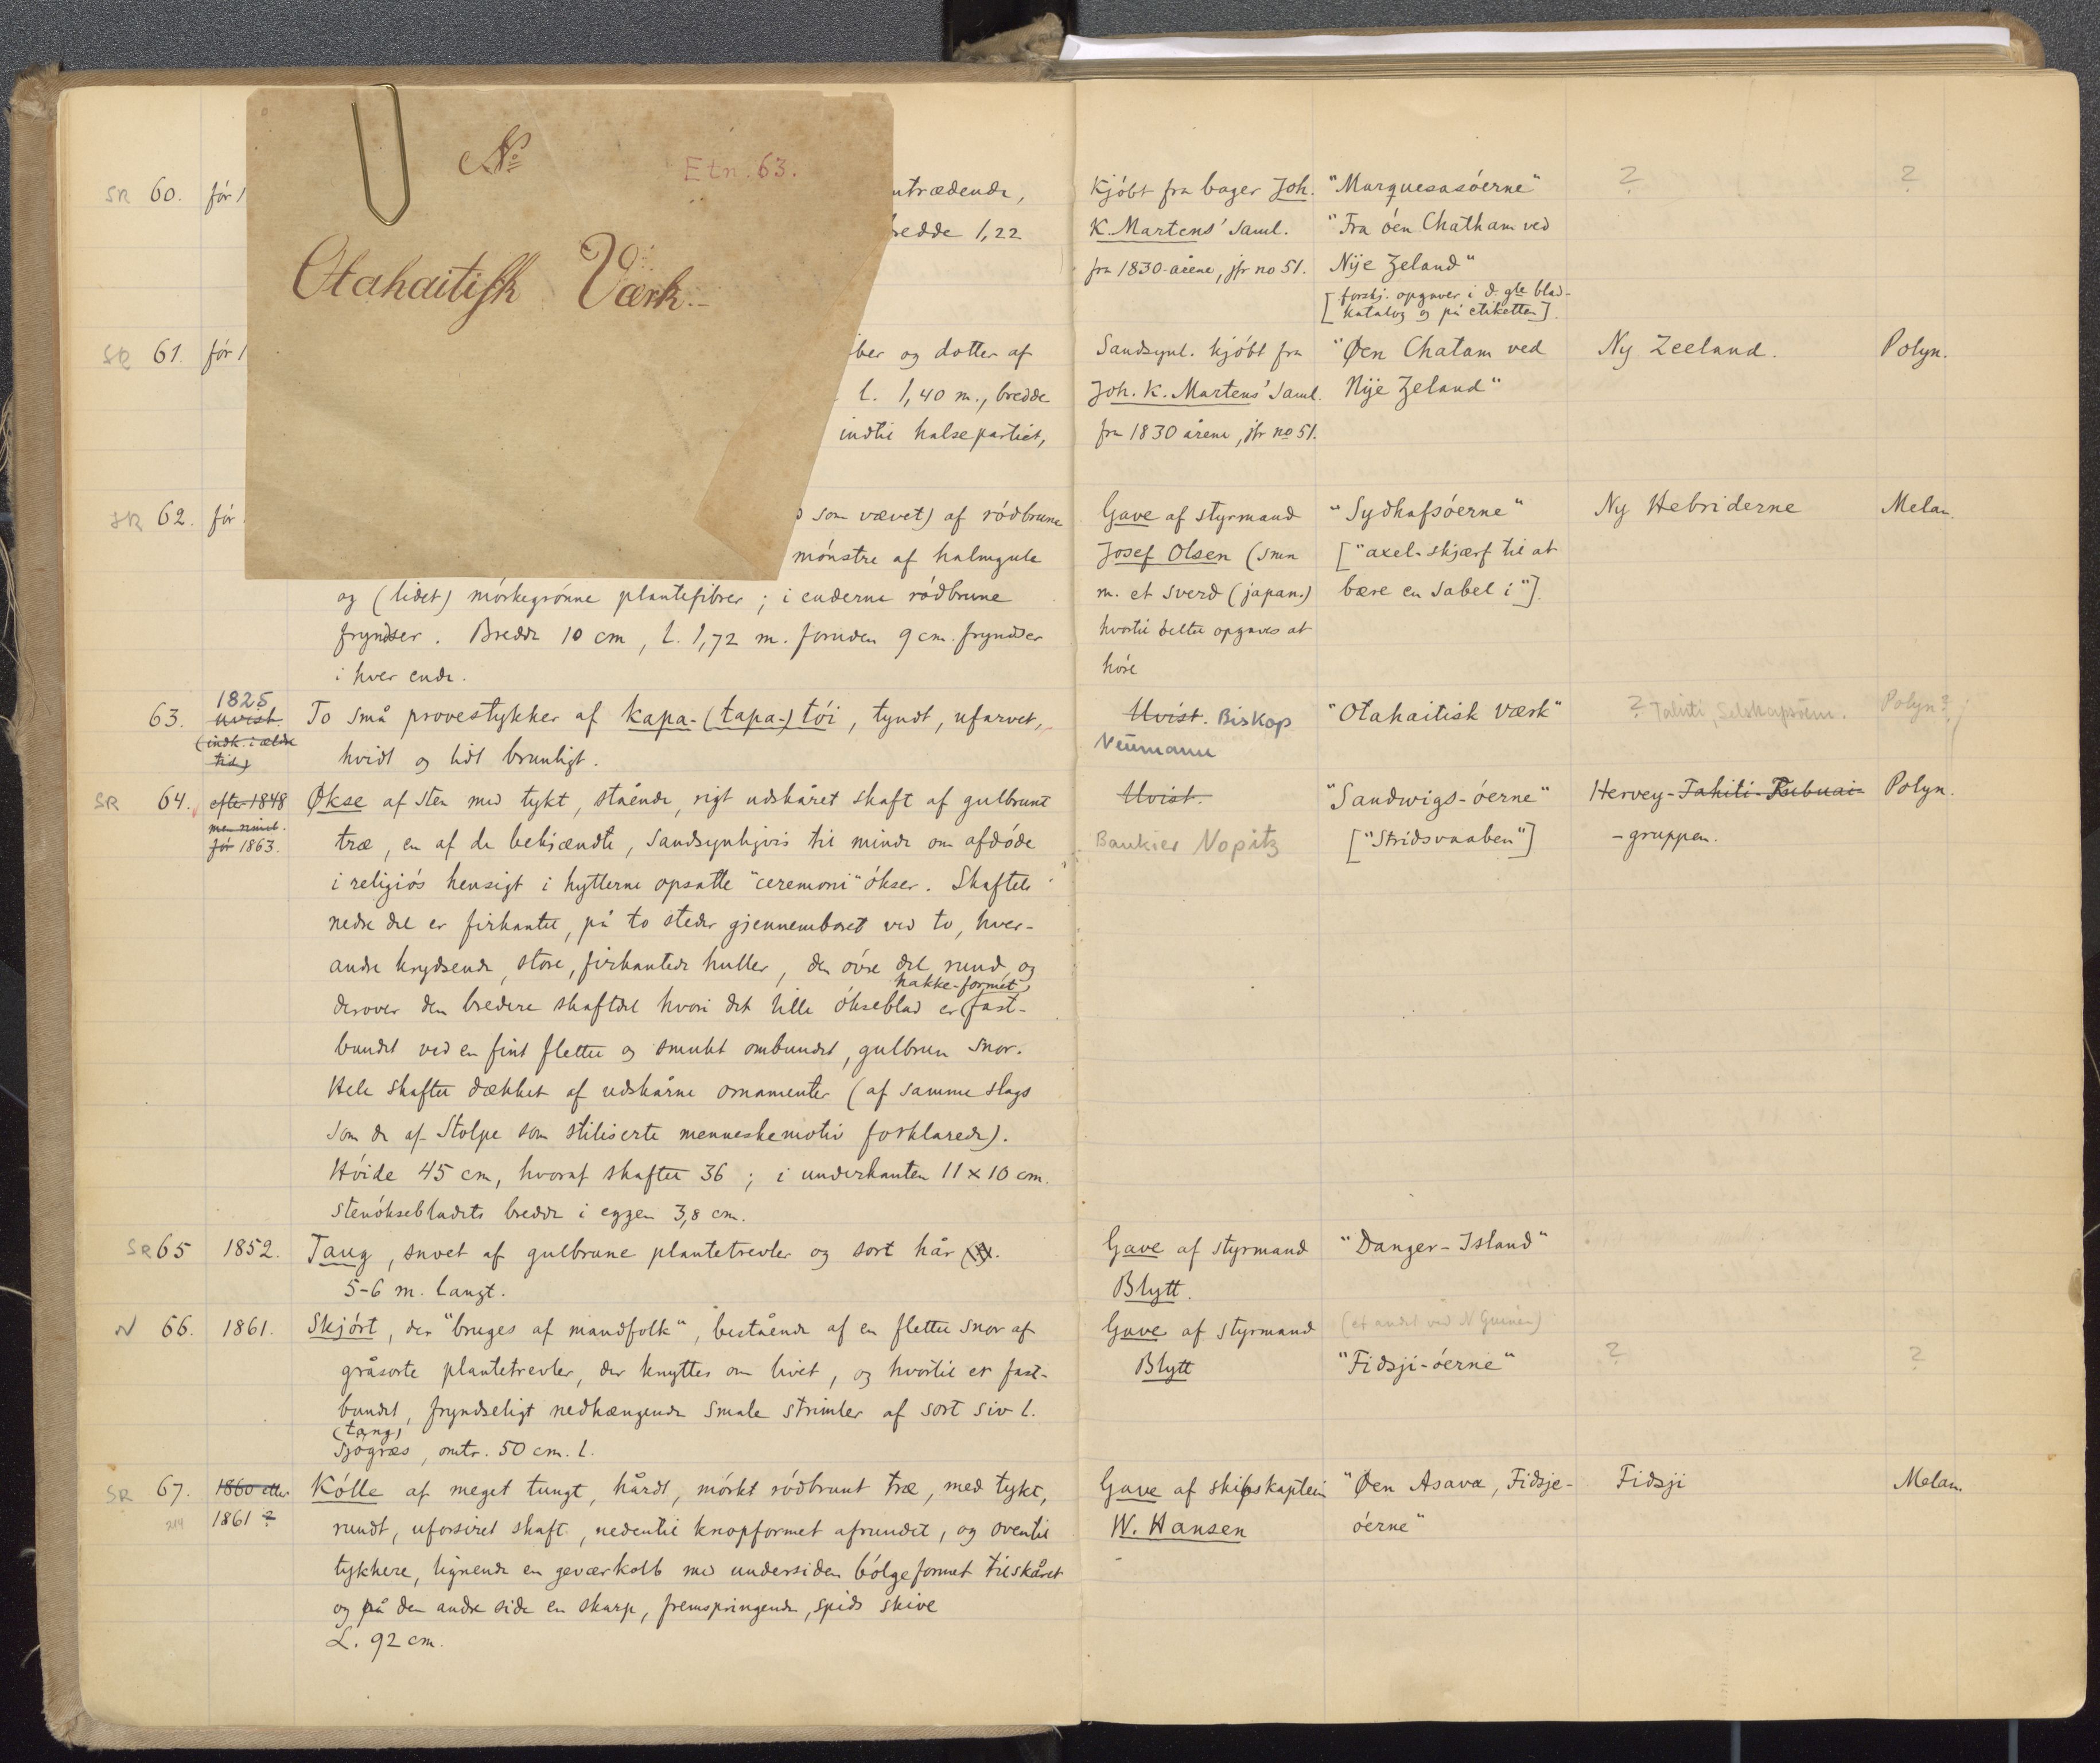 No
Etn. 63.
Otahaitisk Værk.
SR 60. før 1
ntrædende,
bredde 1,22
Kjøbt fra bager Joh.
K. Martens' saml.
fra 1830-årene, jfr no 51.
"Marquesasøerne"
"Fra øen Chatham ved
Nije Zeland"
[forskj. opgaver i d. gle blad-
katalog og på etiketten].
?
?
SR 61. før 1
ber og dotter af
l. 1,40 m., bredde
indtil halsepartiet,
Sandsynl. kjøbt fra
Joh. K. Martens' saml.
fra 1830 årene, jfr no 51.
"Øen Chatam ved
Nije Zeland"
Ny Zeeland.
Polyn.
SR 62. før
som vævet) af rødbrune
mønstre af halmgule
og (lidet) mørkegrønne plantefibrer; i enderne rødbrune
fryndser. Bredde 10 cm, l. 1,72 m. foruden 9 cm. fryndser
i hver ende.
Gave af styrmand
Josef Olsen (smn
m. et sverd (japan.)
hvortil beltet opgaves at
høre
"Sydhafsøerne"
["axel-skjærf til at
bære en sabel i"].
Ny Hebriderne
Melan.
63. 1825
uvist.
(indk. i ældre
tid)
To små prøvestykker af kapa- (tapa-) tøi, tyndt, ufarvet,
hvidt og lidt brunligt.
Uvist. Biskop
Neumann
"Otahaitisk værk"
? Tahiti, Selskapsøerne.
Polyn?
SR 64. efter 1848
men mindst.
før 1863.
Økse af sten med tykt, stående, rigt udskåret skaft af gulbrunt
træ, en af de bekjændte, sandsynligvis til minde om afdøde
i religiøs hensigt i hytterne opsatte "ceremoni" økser. Skaftets
nedre del er firkantet, på to steder gjennemboret ved to, hver-
andre krydsende, store, firkantede huller, den øvre del rund, og
hakke-formet
derover den bredere skaftdel hvori det lille økseblad er fast-
bundet ved en fint flettet og smukt ombundet, gulbrun snor.
Hele skaftet dækket af udskårne ornamenter (af samme slags
som de af Stolpe som stiliserte menneskemotiv forklarede).
Høide 45 cm, hvoraf skaftet 36; i underkanten 11 x 10 cm.
stenøksebladets bredde i eggen 3,8 cm.
Uvist.
Bankier Nopitz
"Sandwigs-øerne"
["Stridsvaaben"]
Hervey-Tahiti-Tubuai-
-gruppen.
Polyn.
SR 65 1852.
Taug, snoet af gulbrune plantetrevler og sort hår.
5-6 m. langt.
Gave af styrmand
Blytt.
"Danger-Island"
N 66. 1861.
Skjørt, der "bruges af mandfolk", bestående af en flettet snor af
gråsorte plantetrevler, der knyttes om livet, og hvortil er fast-
bundet, fryndseligt nedhængende smale strimler af sort siv l.
(tang)
sjøgræs, omtr. 50 cm. l.
Gave af styrmand
Blytt
(et andet ved N Guinea)
"Fidsji-øerne"
?
?
SR 67. 1860 eller
214 1861 ?
Kølle af meget tungt, hårdt, mørkt rødbrunt træ, med tykt,
rundt, uforsiret skaft, nedentil knopformet afrundet, og oventil
tykkere, lignende en geværkolb med undersiden bølgeformet tilskåret
og på den andre side en skarp, fremspringende, spids skive
L. 92 cm.
Gave af skibskaptein
W. Hansen
"Øen Asava, Fidsje-
øerne"
Fidsji
Melan.